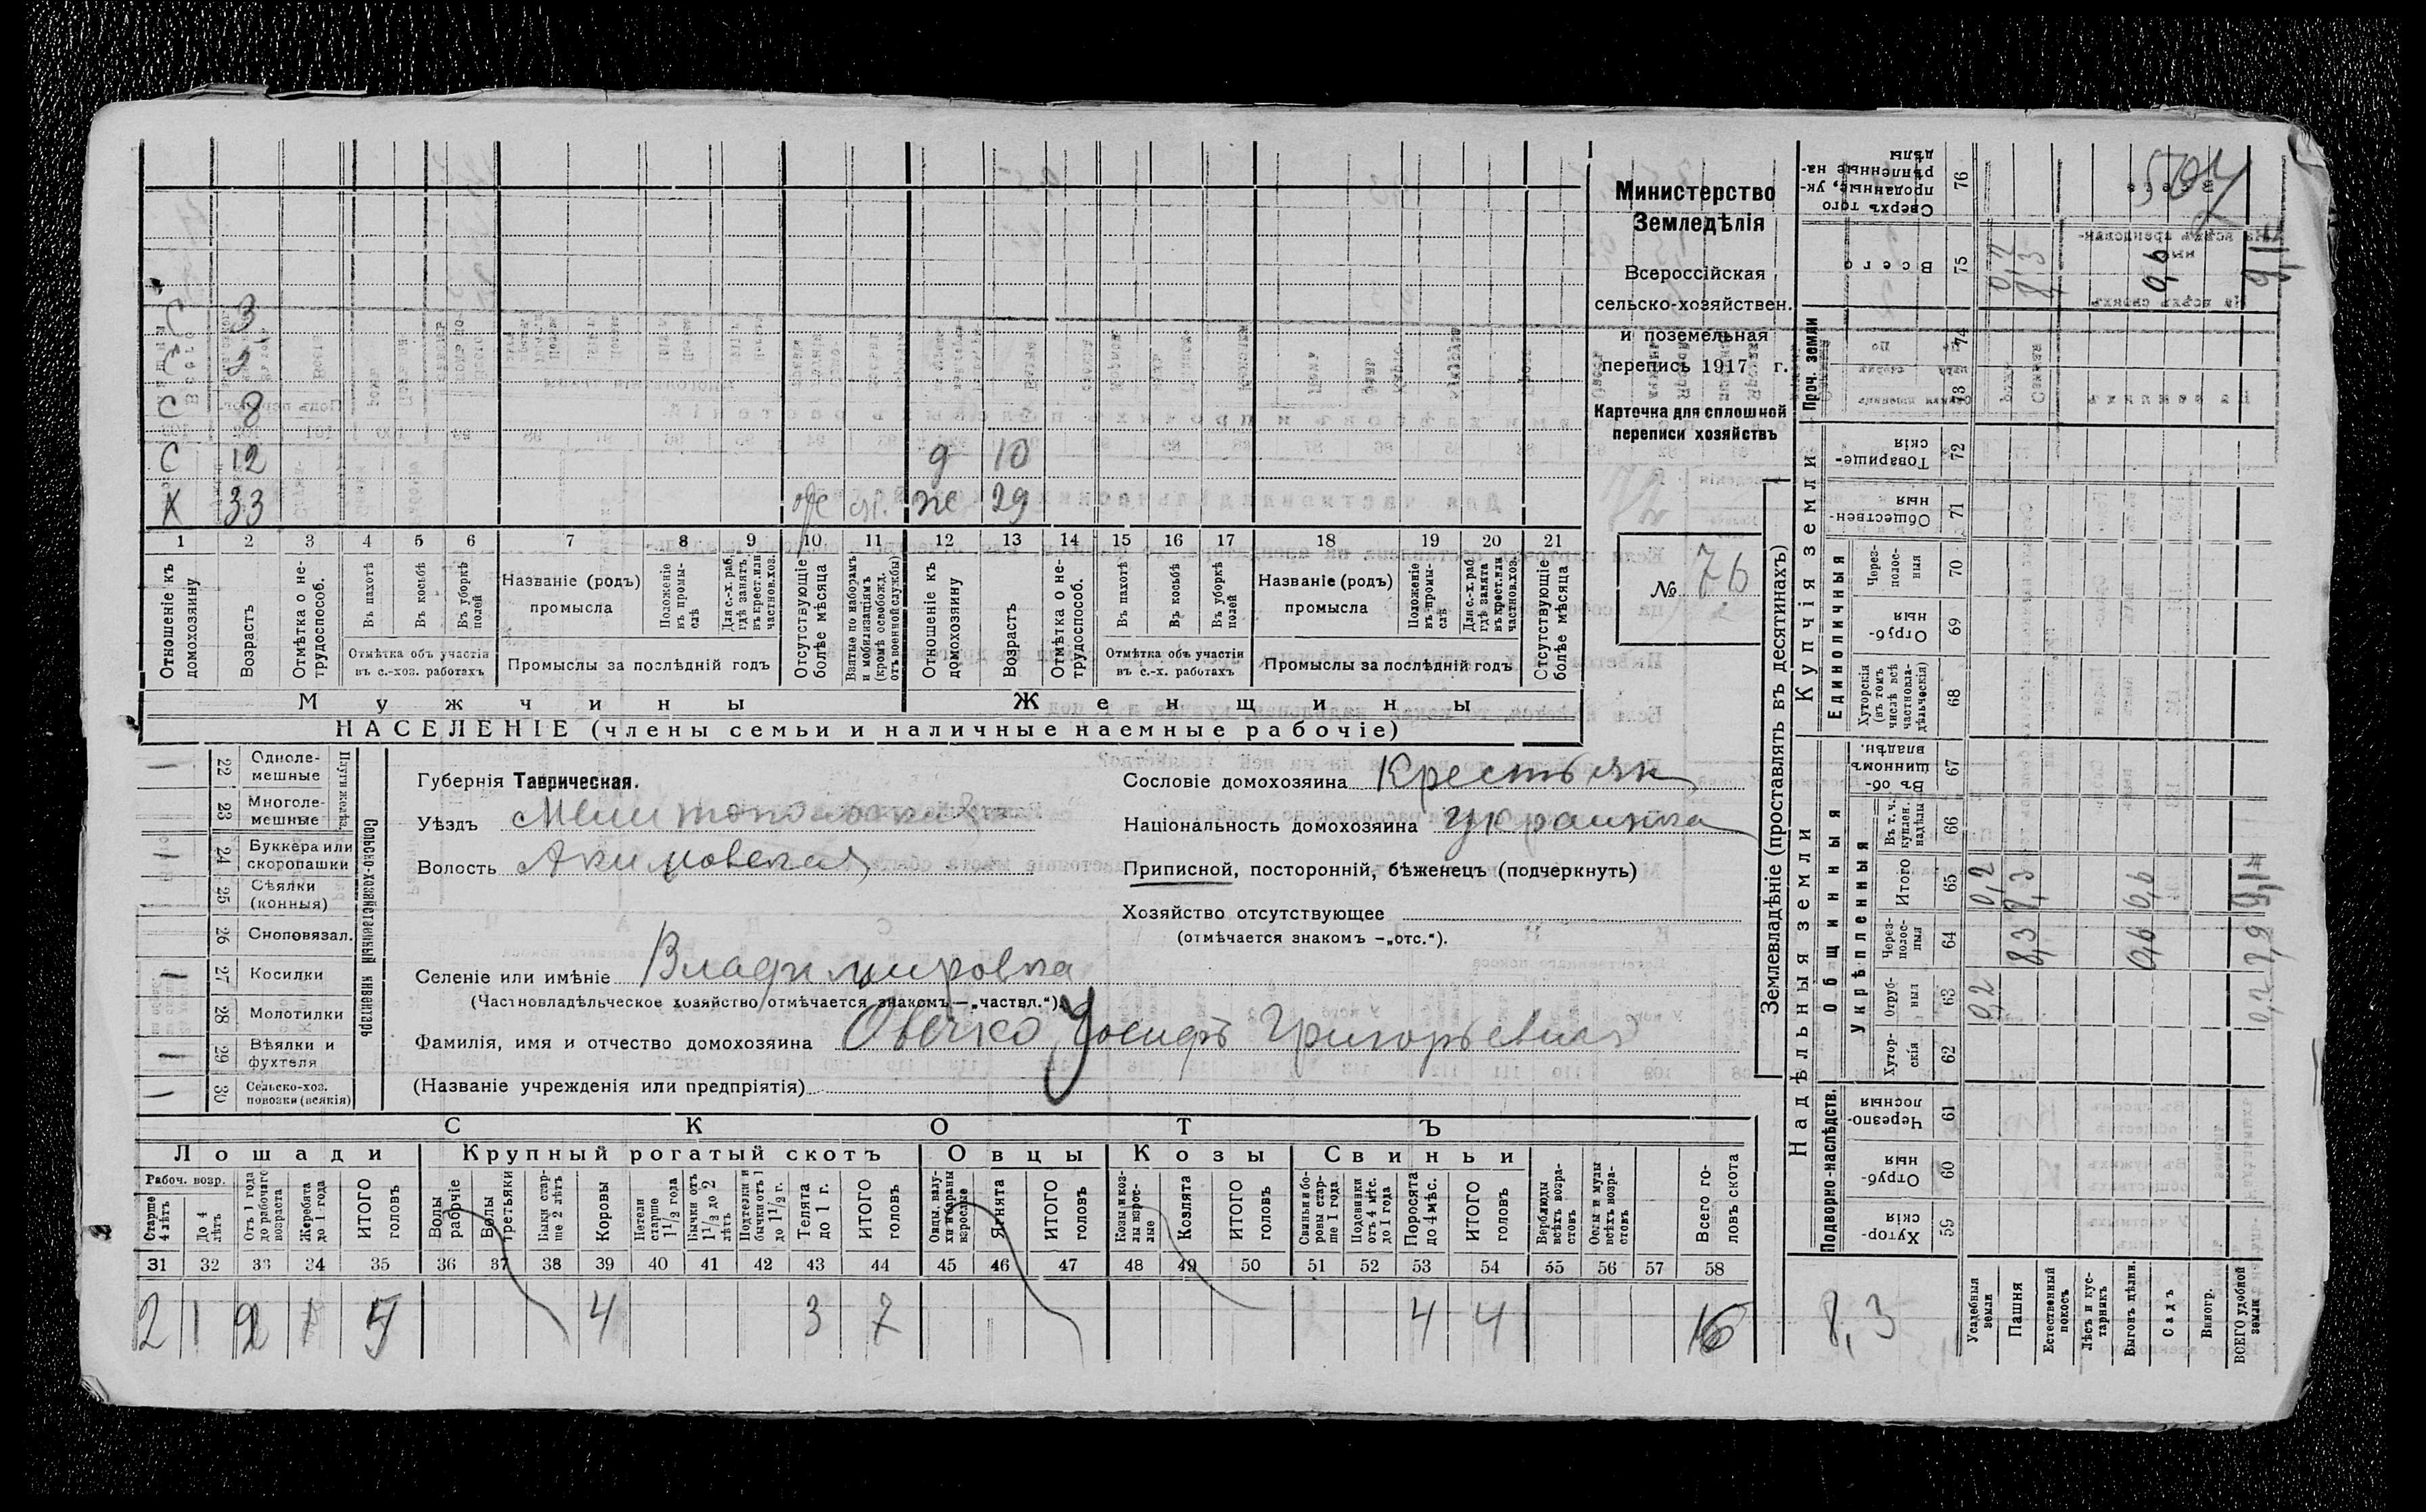 Министерство
Земледѣлія
Всероссійская
сельско-хозяйствен.
и поземельная
перепись 1917 г.
Карточка для сплошной
переписи хозяйствъ
№ 76
С 3
С
С 8
С 12 д 10
Х 33 ж 29
1 2 3 4 5 6 7 8 9 10 11 12 13 14 15 16 17 18 19 20 21
Отношеніе къ домохозяину
Возрастъ
Отмѣтка о не-трудоспособ.
Въ пахотѣ
Въ косьбѣ
Въ уборкѣ полей
Отмѣтка объ участіи
въ с.-хоз. работахъ
Названіе (родъ)
промысла
Положеніе въ промы-слѣ
Для с.-х. раб. гдѣ занятъ въ крест. или частнов. хоз.
Промыслы за послѣдній годъ
Отсутствующіе болѣе мѣсяца
Взятые по наборамъ и мобилизаціямъ (кромѣ освобожд. отъ военной службы)
Отношеніе къ домохозяину
Возрастъ
Отмѣтка о не-трудоспособ.
Въ пахотѣ
Въ косьбѣ
Въ уборкѣ полей
Отмѣтка объ участіи
въ с.-х. работахъ
Названіе (родъ)
промысла
Положеніе въ промы-слѣ
Для с.-х. раб. гдѣ занята въ крест. или частнов. хоз.
Промыслы за послѣдній годъ
Отсутствующіе болѣе мѣсяца
Мужчины Женщины
НАСЕЛЕНІЕ (члены семьи и наличные наемные рабочіе)
Сельско-хозяйственный инвентарь
Плуги желѣз.
22 Одноле-мешные
23 Многоле-мешные
24 Буккера или скоропашки
25 Сѣялки (конныя)
26 Сноповязал.
27 Косилки
28 Молотилки
29 Вѣялки и фухтеля
30 Сельско-хоз. повозки (всякія)
Губернія Таврическая.
Уѣздъ Мелитопольский
Волость Акимовская
Сословіе домохозяина Крестьян
Національность домохозяина украинка
Приписной, посторонній, бѣженецъ (подчеркнуть)
Хозяйство отсутствующее
(отмѣчается знакомъ —„отс.“).
Селеніе или имѣніе Владимировка
(Частновладѣльческое хозяйство отмѣчается знакомъ —„частвл.“).
Фамилія, имя и отчество домохозяина Овечко Іосифъ Григорьевичъ
(Названіе учрежденія или предпріятія)
СКОТЪ
Лошади Крупный рогатый скотъ Овцы Козы Свиньи
Рабоч. возр.
Старше 4 лѣтъ
До 4 лѣтъ
Отъ 1 года до рабочаго возраста
Жеребята до 1 года
ИТОГО головъ
Волы рабочіе
Волы третьяки
Быки стар-ше 2 лѣтъ
Коровы
Нетели старше 1½ года
Бычки отъ 1½ до 2 лѣтъ
Подтелки и бычки отъ 1 до 1½ г.
Телята до 1 г.
ИТОГО головъ
Овцы, валу-хи и бараны взрослые
Ягнята
ИТОГО головъ
Козы и коз-лы взрос-лые
Козлята
ИТОГО головъ
Свиньи и бо-ровы стар-ше 1 года
Подсвинки отъ 4 мѣс. до 1 года
Поросята до 4 мѣс.
ИТОГО головъ
Верблюды всѣхъ возра-стовъ
Ослы и мулы всѣхъ возра-стовъ
Всего го-ловъ скота
31 32 33 34 35 36 37 38 39 40 41 42 43 44 45 46 47 48 49 50 51 52 53 54 55 56 57 58
2 1 4 3 7 4 4 16
Землевладѣніе (проставлять въ десятинахъ)
Надѣльныя земли Купчія земли Проч. земли
Подворно-наслѣдств.
Общинныя
Укрѣпленныя
Единоличныя
Хутор-скія 59
Отруб-ныя 60
Черезпо-лосныя 61
Хутор-скія 62
Отруб-ныя 63
Через-полос-ныя 64
Итого 65
Въ т. ч. куплен. надѣлы 66
Въ об-щинномъ владѣн. 67
Хуторскія (въ томъ числѣ всѣ частновла-дѣльческія) 68
Отруб-ныя 69
Через-полос-ныя 70
Обществен-ныя 71
Товарище-скія 72
73
74
Всего 75
Сверхъ того проданные, ук-рѣпленные на-дѣлы 76
Усадебныя земли 0,2 0,2
Пашня 8,3 8,3 8,3
Естественный покосъ
Лѣсъ и кус-тарникъ
Выгонъ дѣлин. 0,6 0,6 0,6
Садъ
Виногр.
ВСЕГО удобной земли 0,2
8,3